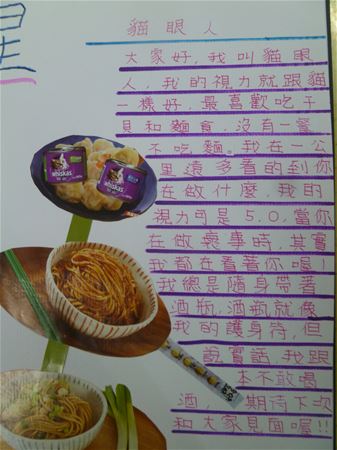 星
貓眼人
大家好,我叫貓眼
人,我的視力就跟貓
一樣好,最喜歡吃干
貝和麵食,沒有一餐
不吃麵。我在一公
里遠多看的到你
在做什麼,我的
視力可是5.0,當你
在做褒事時,其實
我都在看著你喔!
我總是隨身帶著
酒瓶,酒瓶就像
我的護身符,但
說實話,我跟
本不敢喝
酒,期待下次
和大家見面喔!!
whiskas
whiskas